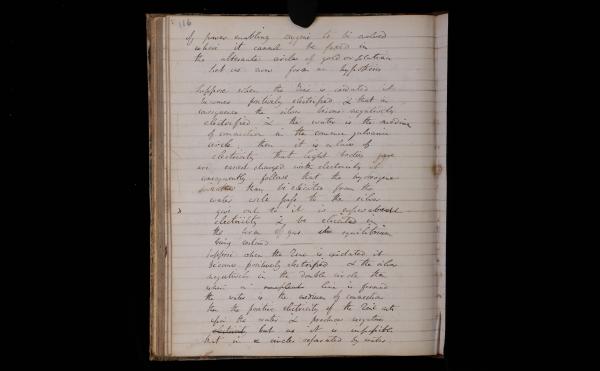 116
of power enabling oxygene to be evolved
where it cannot be fixed in
the alternate circles of gold or platina
Let us now form an hypothesis
Suppose when the Zinc is oxidated it
becomes positively electrified & that in
consequence the silver becomes negatively
electrified & the water is the medium
of connection in the common galvanic
circle. then it is a law of
electricity that light bodies
are easiest charged with electricity it
consequently follows that the hydrogene
than be elicited from the
water will pass to the silver
x give out to it its
electricity & be elicited in
the form of gas the equilibrium
being restored
Suppose when the Zinc is oxidated it
becomes positively electrified & the silver
negatively in the double circle then
when a line is formed
the water is the medium of connection
then the positive electricity of the Zinc acts
upon the water & produces negative
electricity but as it is impossible
but in a circles separated by water